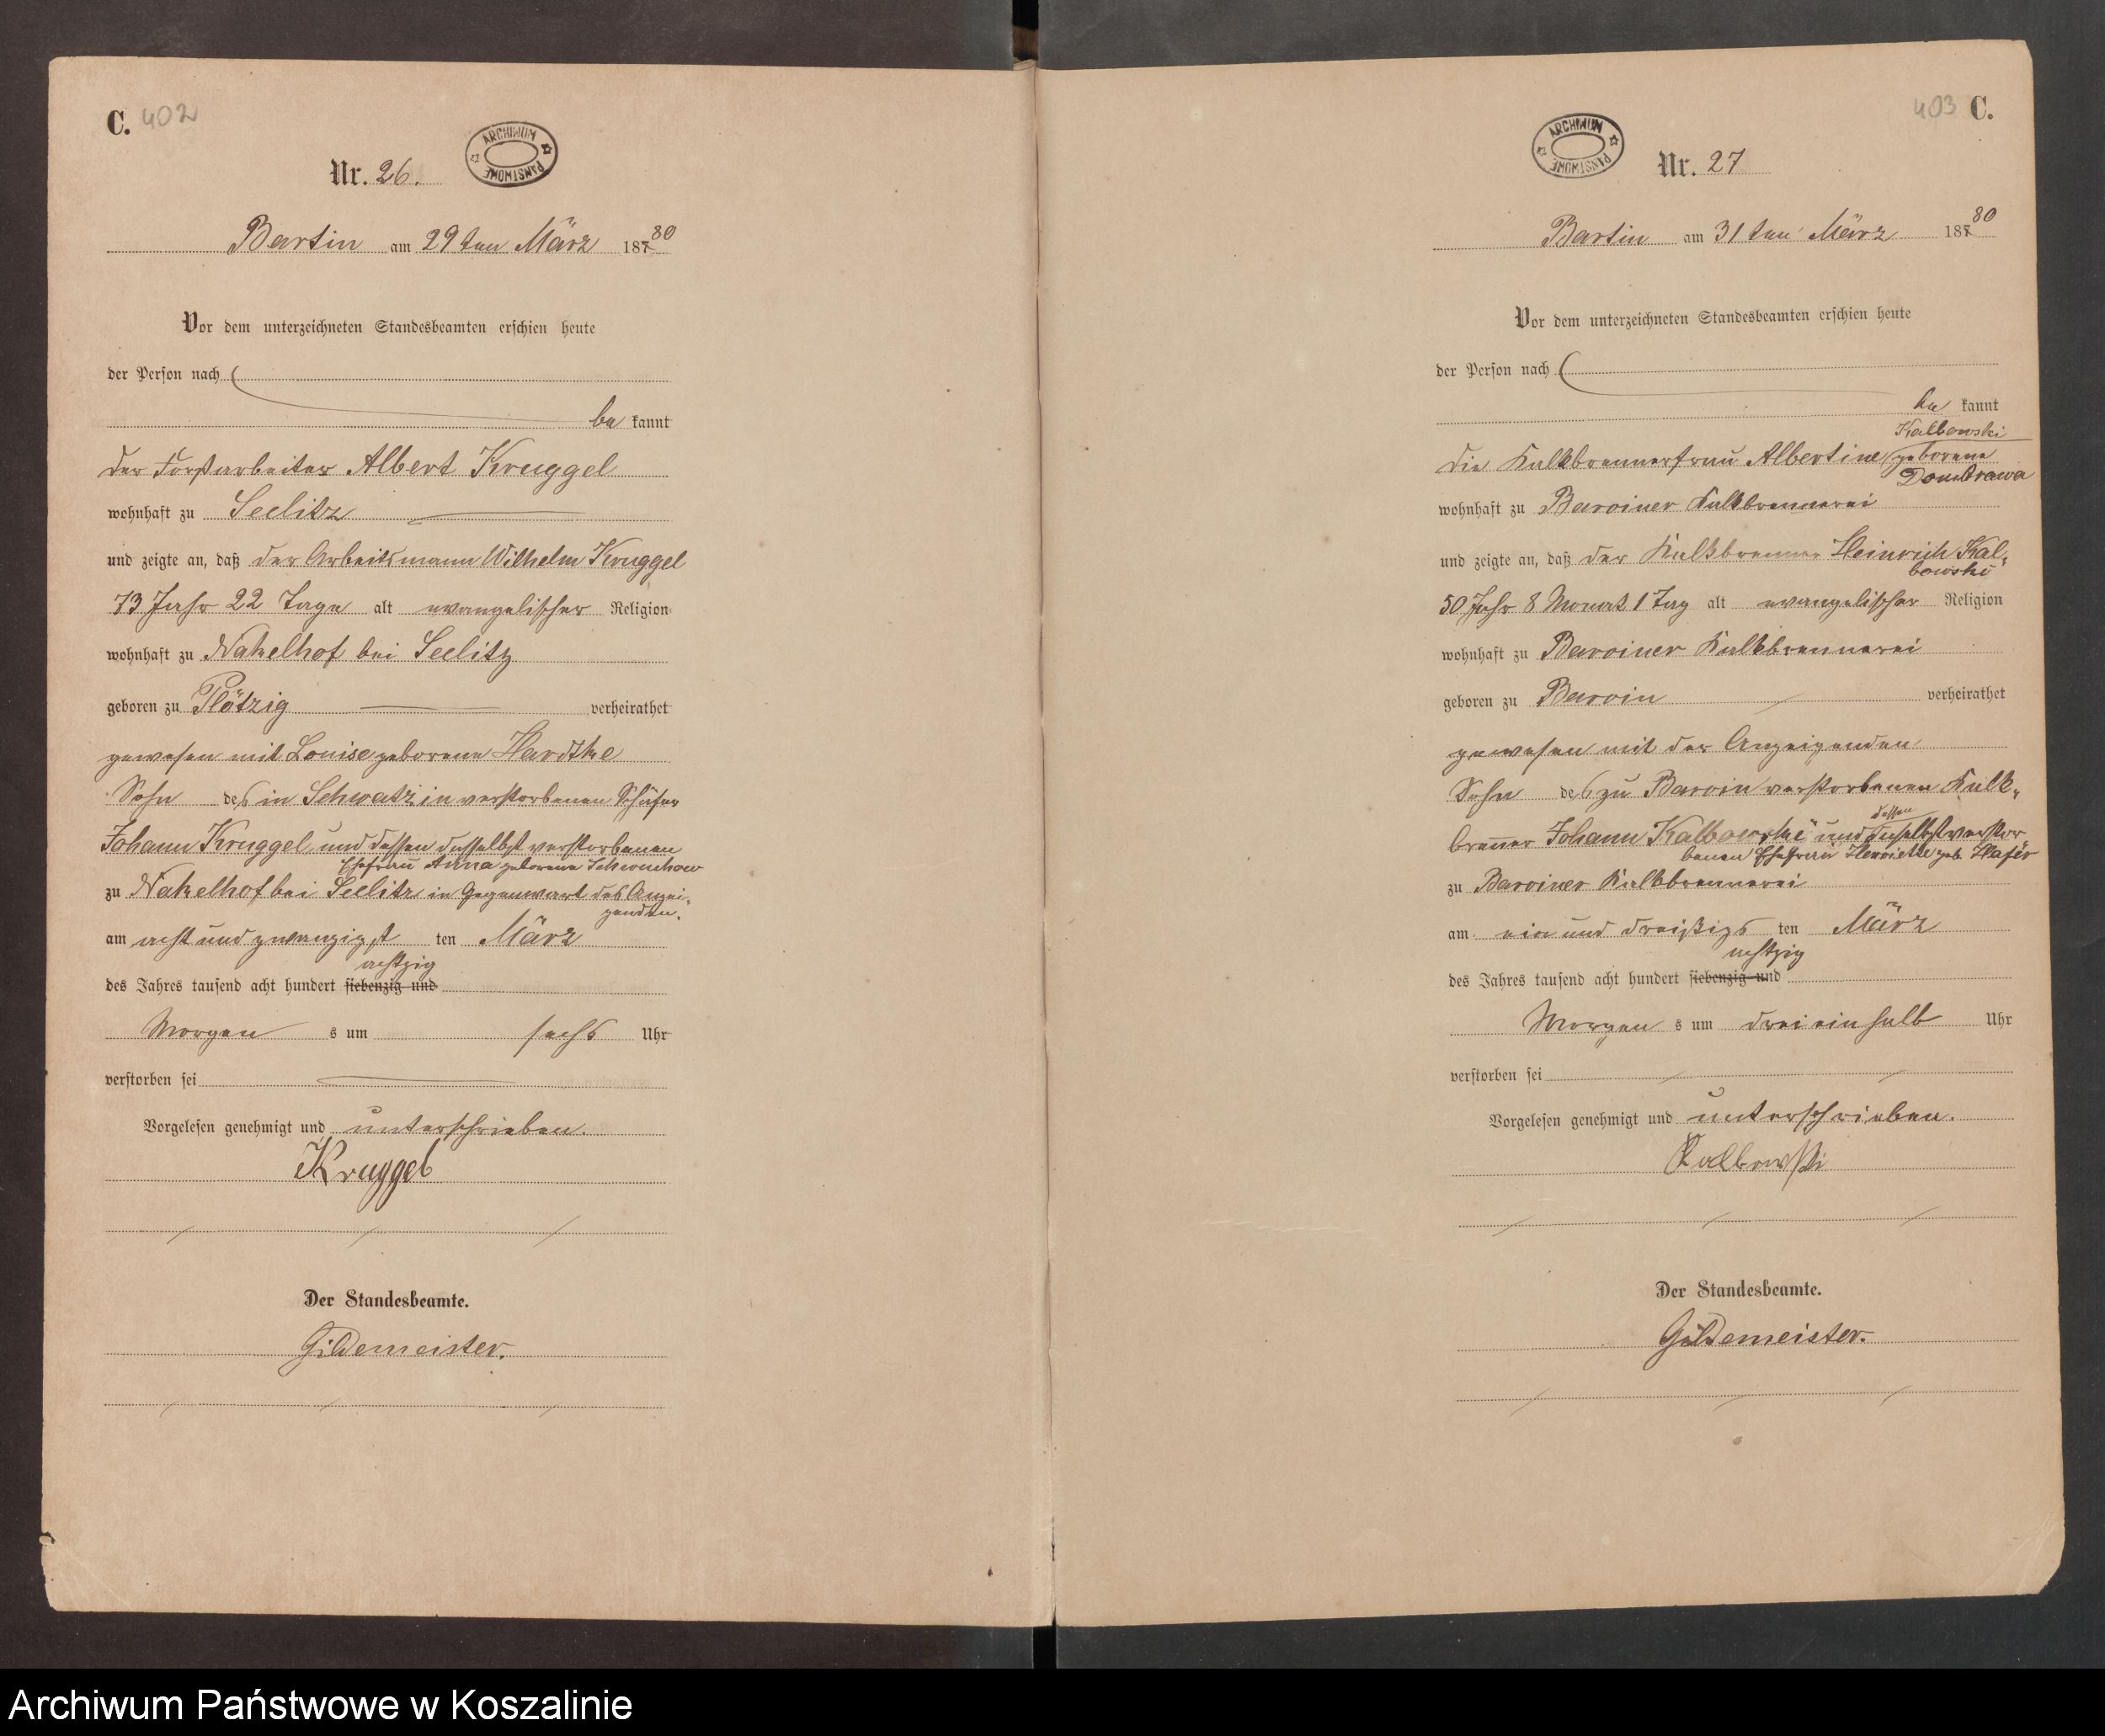 C. 402
ARCHIWUM PAŃSTWOWE
Nr. 26.
Bartin am 29ten März 1880
Vor dem unterzeichneten Standesbeamten erschien heute
der Person nach
be kannt
der Forstarbeiter Albert Kruggel
wohnhaft zu Seelitz
und zeigte an, daß der Arbeitsmann Wilhelm Kruggel
73 Jahr 22 Tage alt evangelischer Religion
wohnhaft zu Nakelhof bei Seelitz
geboren zu Plötzig verheirathet
gewesen mit Louise geborene Hardtke
Sohn des in Schwatzin verstorbenen Schäfer
Johann Kruggel und dessen daselbst verstorbenen
Ehefrau Anna geborene
zu Nakelhof bei Seelitz in Gegenwart des Anzei-
genden.
am acht und zwanzigst ten März
achtzig
des Jahres tausend acht hundert siebenzig und
Morgen s um sechs Uhr
verstorben sei
Vorgelesen genehmigt und unterschrieben.
Kruggel
Der Standesbeamte.
Gildemeister.
403 C.
ARCHIWUM PAŃSTWOWE
Nr. 27
Bartin am 31ten März 1880
Vor dem unterzeichneten Standesbeamten erschien heute
der Person nach
be kannt
Kalbowski
die Kalkbrennerfrau Albertine geborene
Dombrawa
wohnhaft zu Barviner Kalkbrennerei
und zeigte an, daß der Kalkbrenner Heinrich Kal-
bowski
50 Jahr 8 Monat 1 Tag alt evangelischer Religion
wohnhaft zu Barviner Kalkbrennerei
geboren zu Barvin verheirathet
gewesen mit der Anzeigenden
Sohn des zu Barvin verstorbenen Kalk-
dessen
brenner Johann Kalbowski und daselbst verstor
benen Ehefrau Henriette geb.
zu Barviner Kalkbrennerei
am ein und dreißigs ten März
achtzig
des Jahres tausend acht hundert siebenzig und
Morgen s um drei ein halb Uhr
verstorben sei
Vorgelesen genehmigt und unterschrieben.
Kalbowski
Der Standesbeamte.
Gildemeister.
Archiwum Państwowe w Koszalinie